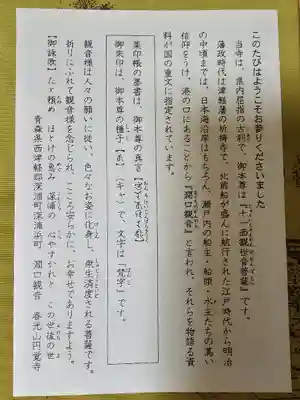 このたびはようこそお参りくださいました
当寺は、県内屈指の古刹で、御本尊は『十一面観世音菩薩』です。
藩政時代は津軽藩の祈祷寺で、北前船が盛んに航行された江戸時代から明治
の中頃までは、日本海沿岸はもちろん、瀬戸内の船主・船頭・水主たちの篤い
信仰をうけ、港の口にあることから『澗口観音』と言われ、それらを物語る資
料が国の重文に指定されています。
納経帳の墨書は、御本尊の真言
御朱印は、御本尊の種子（キャ）で、文字は「梵字」です。
観音様は人々の願いに従い、色々なお姿に化身し、衆生済度される菩薩です。
折りにふれて観音様を念じられ、こころ安らかに、お幸せでありますよう。
【御詠歌】たゞ頼め　ほとけの恵み　深浦の　心やすかれと　この世後の世
青森県西津軽郡深浦町深浦浜町　澗口観音　春光山円覚寺